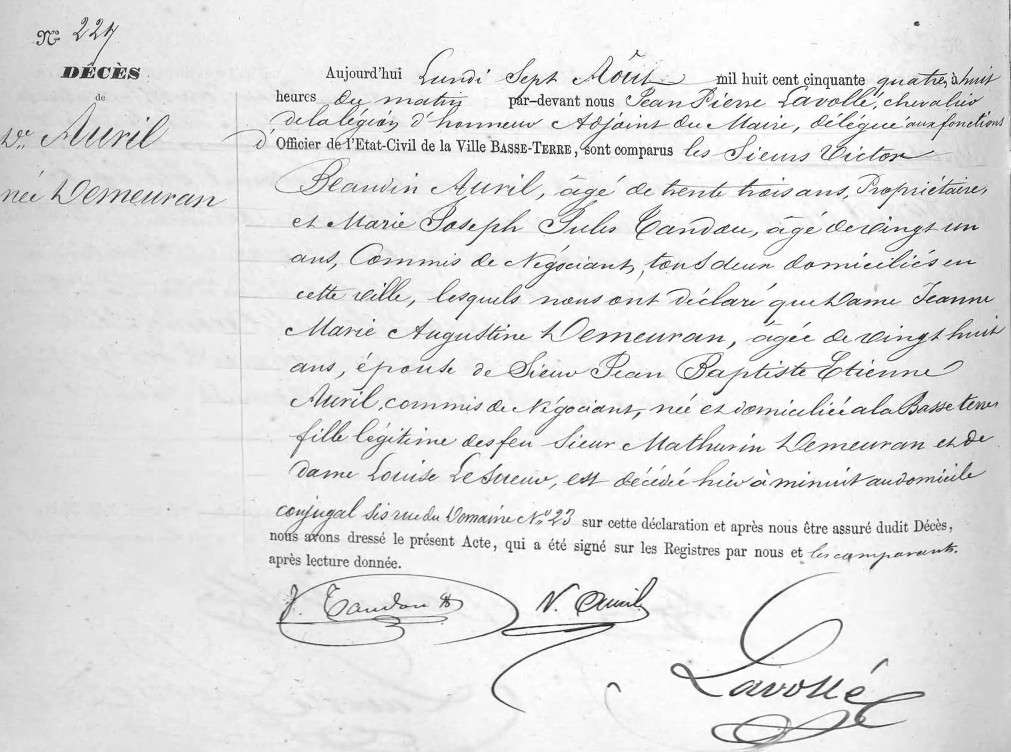 N° 227
DÉCÈS
de
De Auril
née Demeuran
Aujourd'hui Lundi Sept Août mil huit cent cinquante quatre, à huit
heures du matin par-devant nous Jean Pierre Lavollé, chevalier
de la légion d'honneur Adjoint du Maire, délégué aux fonctions
d'Officier de l'Etat-Civil de la Ville BASSE-TERRE, sont comparus les Sieurs Victor
Beauvin Auril, âgé de trente trois ans, Propriétaire,
et Marie Joseph Jules Tandou, âgé de vingt un
ans, Commis de Négociant, tous deux domiciliés en
cette ville, lesquels nous ont déclaré que Dame Jeanne
Marie Augustine Demeuran, âgée de vingt huit
ans, épouse de Sieur Jean Baptiste Etienne
Auril, commis de Négociant, née et domiciliée a la Basse terre
fille légitime des feu Sieur Mathurin Demeuran et de
dame Louise Lesueur, est décédée hier à minuit au domicile
conjugal sis rue du Domaine N° 23 sur cette déclaration et après nous être assuré dudit Décès,
nous avons dressé le présent Acte, qui a été signé sur les Registres par nous et les comparants.
après lecture donnée.
J. Tandou V. Auril
Lavollé